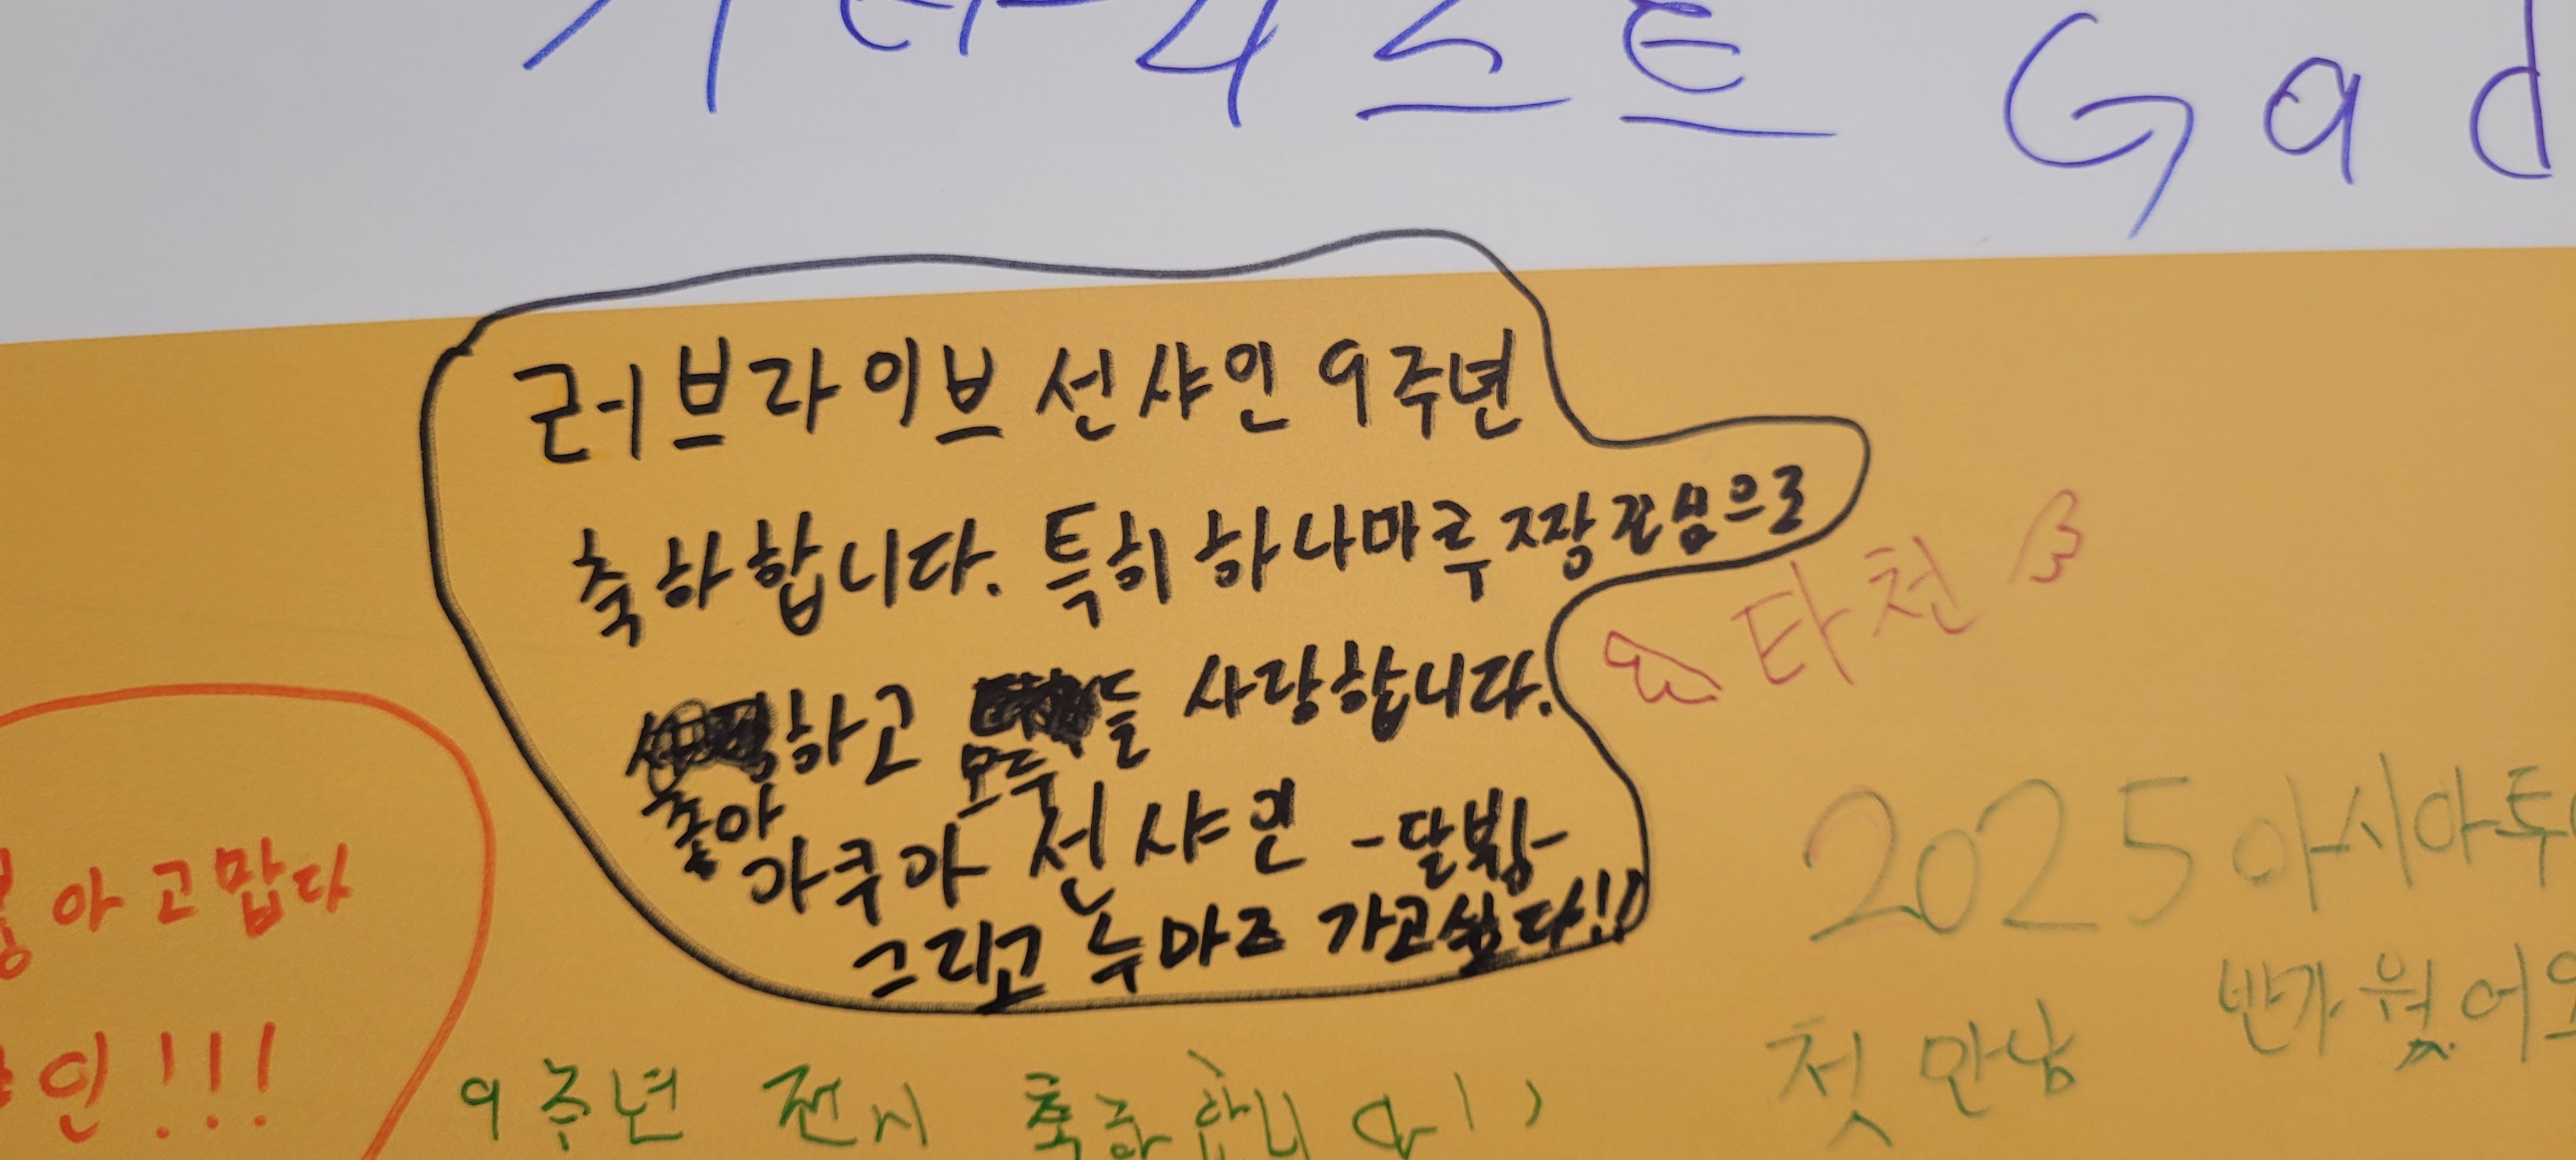 스트 Gad
러브라이브 선샤인 9주년
축하합니다. 특히 하나마루짱 진심으로
좋아하고 모두들 사랑합니다.
아쿠아 선샤인 -달밤-
그리고 누마즈 가고싶다!!
타천
아 고맙다
인!!!
2025 아시아투
첫 만남 반가웠어요
9주년 전시 축하합니다!!